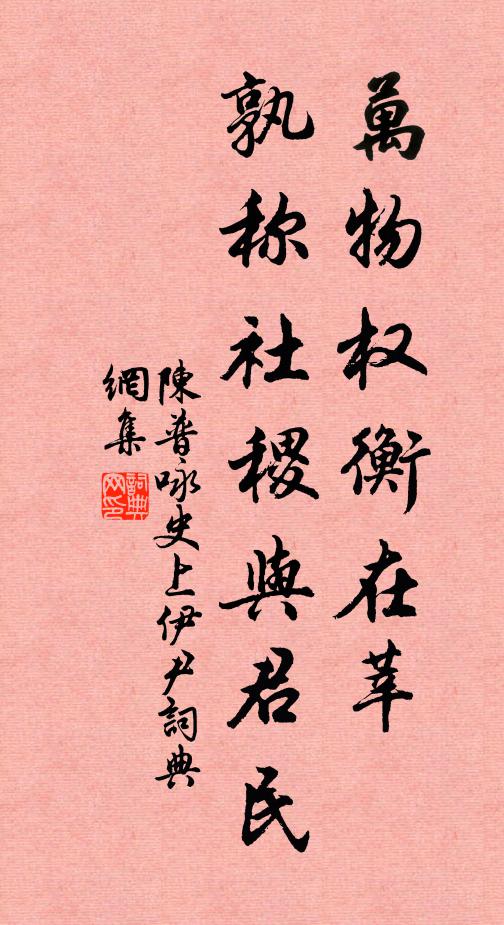 萬物权衡在莘
孰称社稷與君民
陳普咏史上伊尹詞典
網集
詞典网印